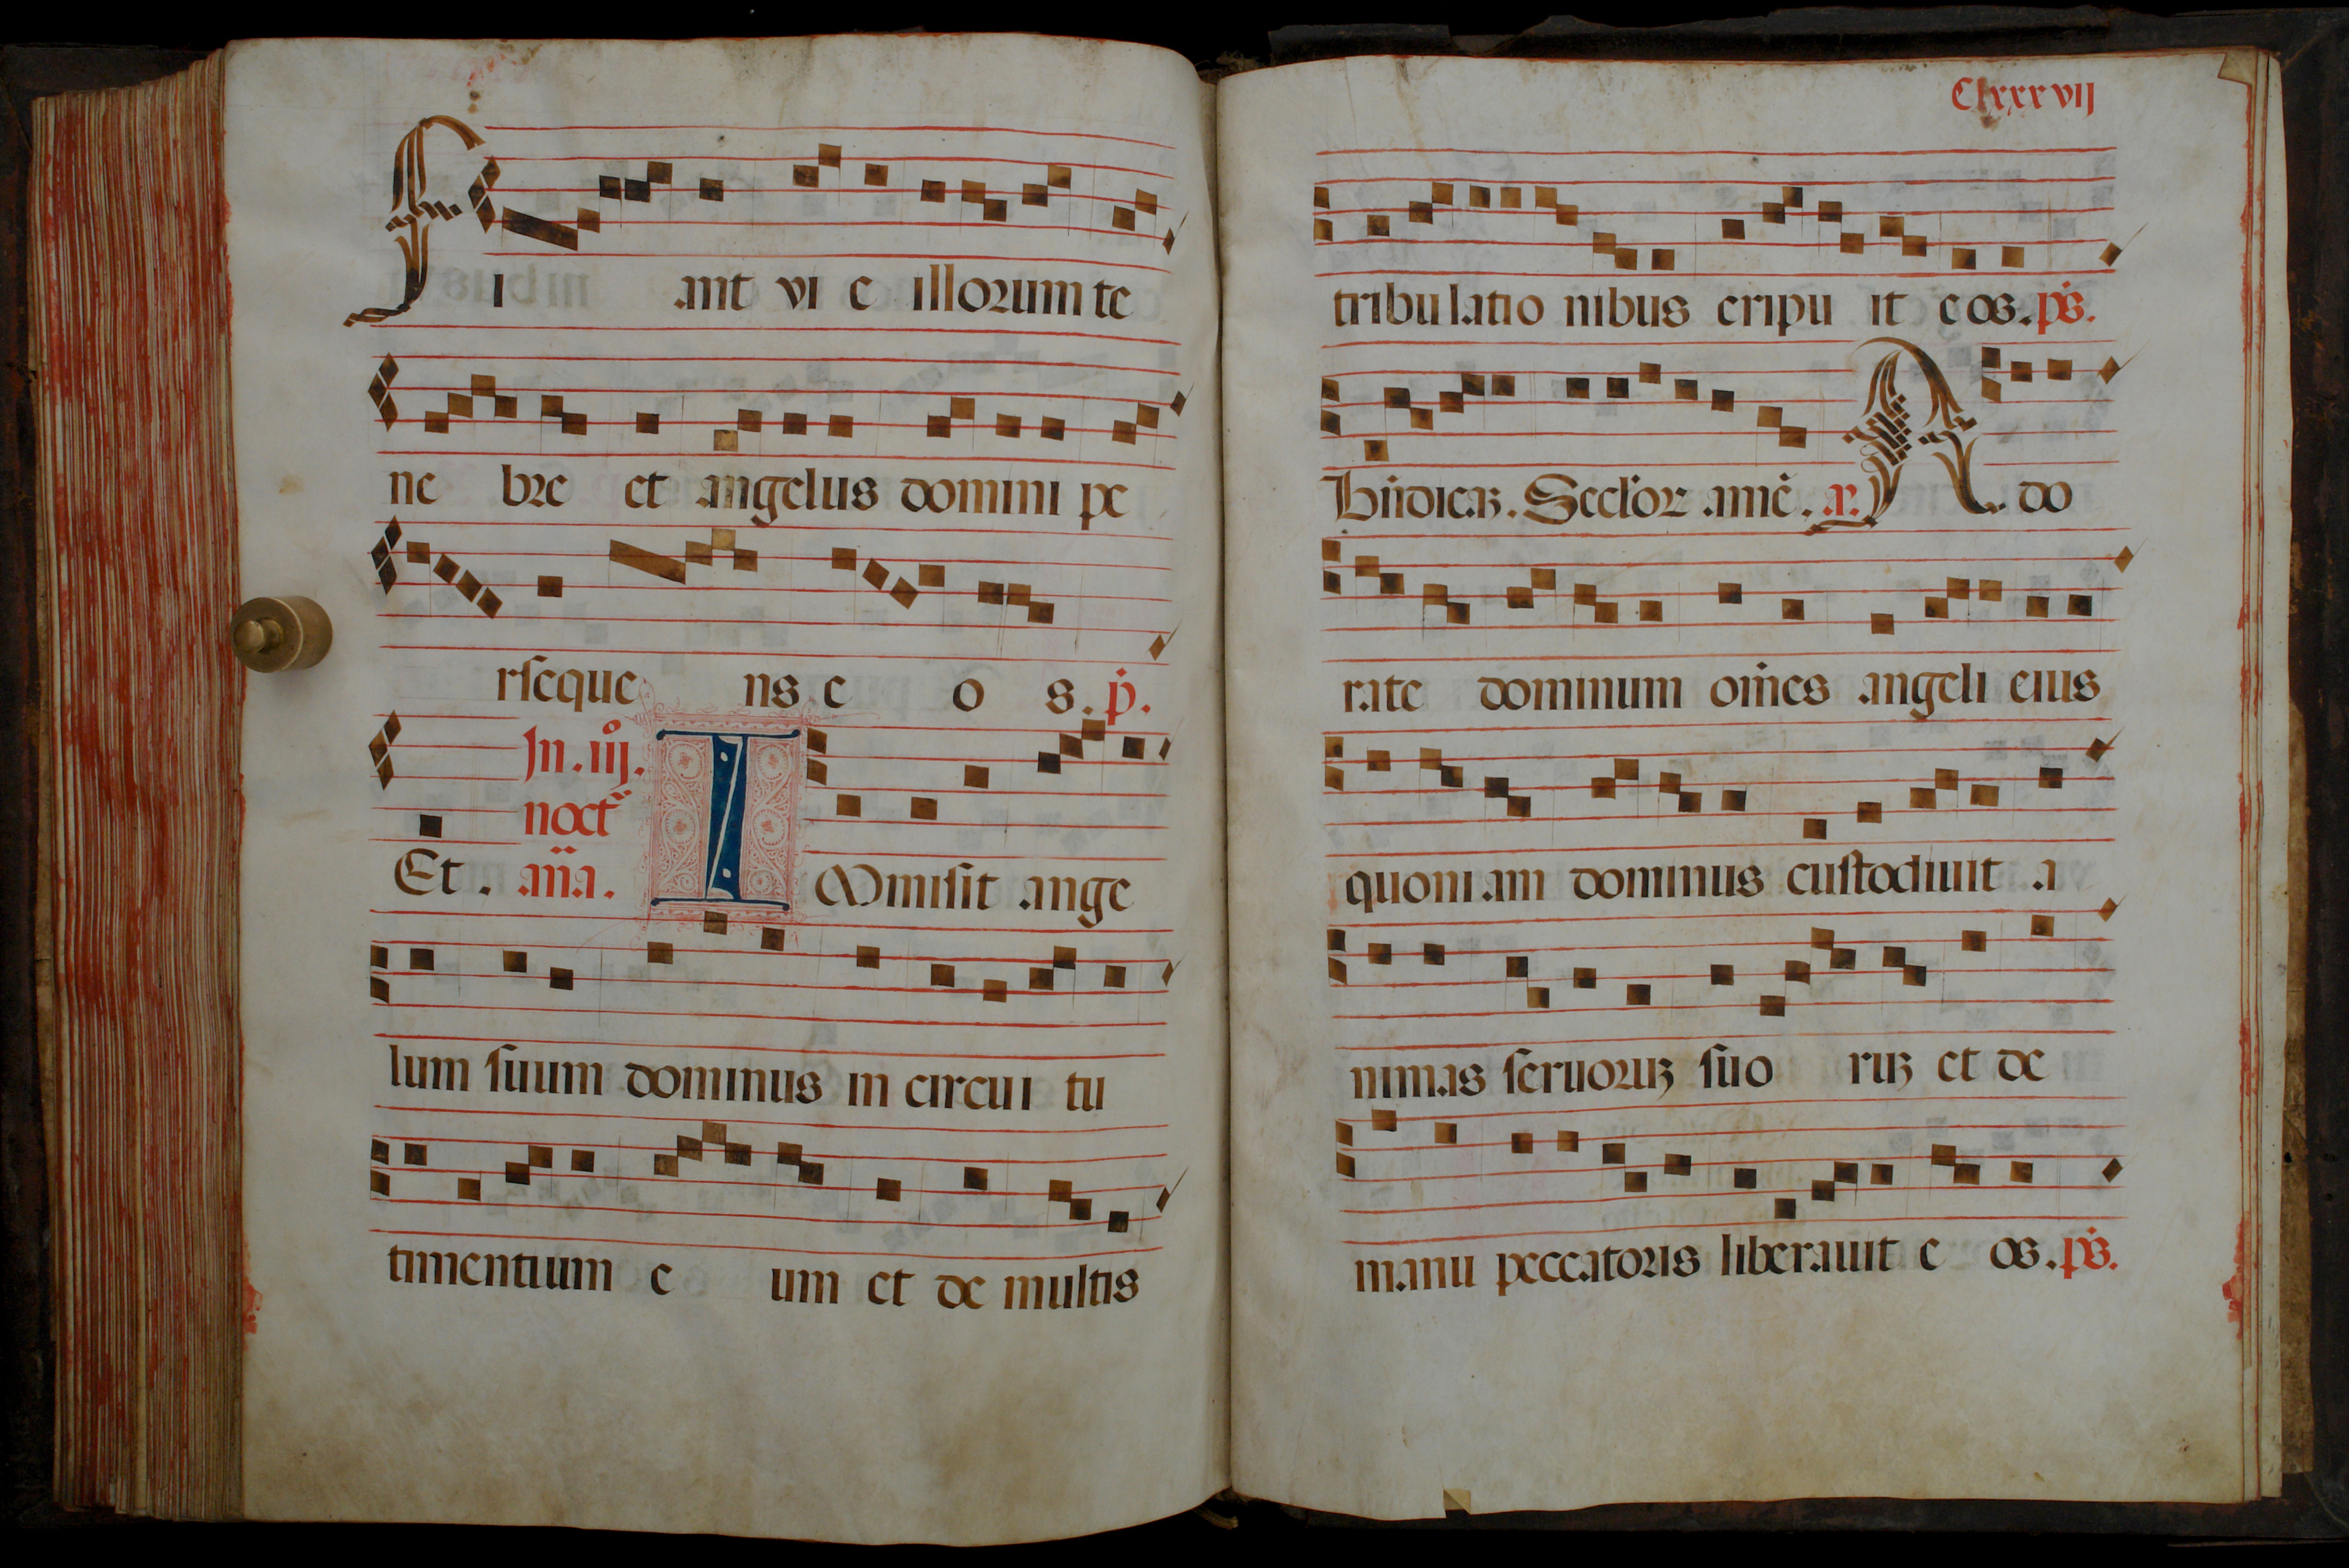 Fi ant vi e illorum te
ne bre et angelus domini pe
rseque ns e o s. p̄.
In .iij.
noct̄
Et . an̄a. IMmisit ange
lum suum dominus in circui tu
timentium e um et de multis
Clxxxvij
tribulatio nibus eripu it eos. ps.
Bn̄dicaꝫ. Sec̄l'or amē. a. A do
rate dominum om̄es angeli eius
quoniam dominus custodiuit a
nimas seruoruꝫ suo ruꝫ et de
manu peccatoris liberauit e os. ps.